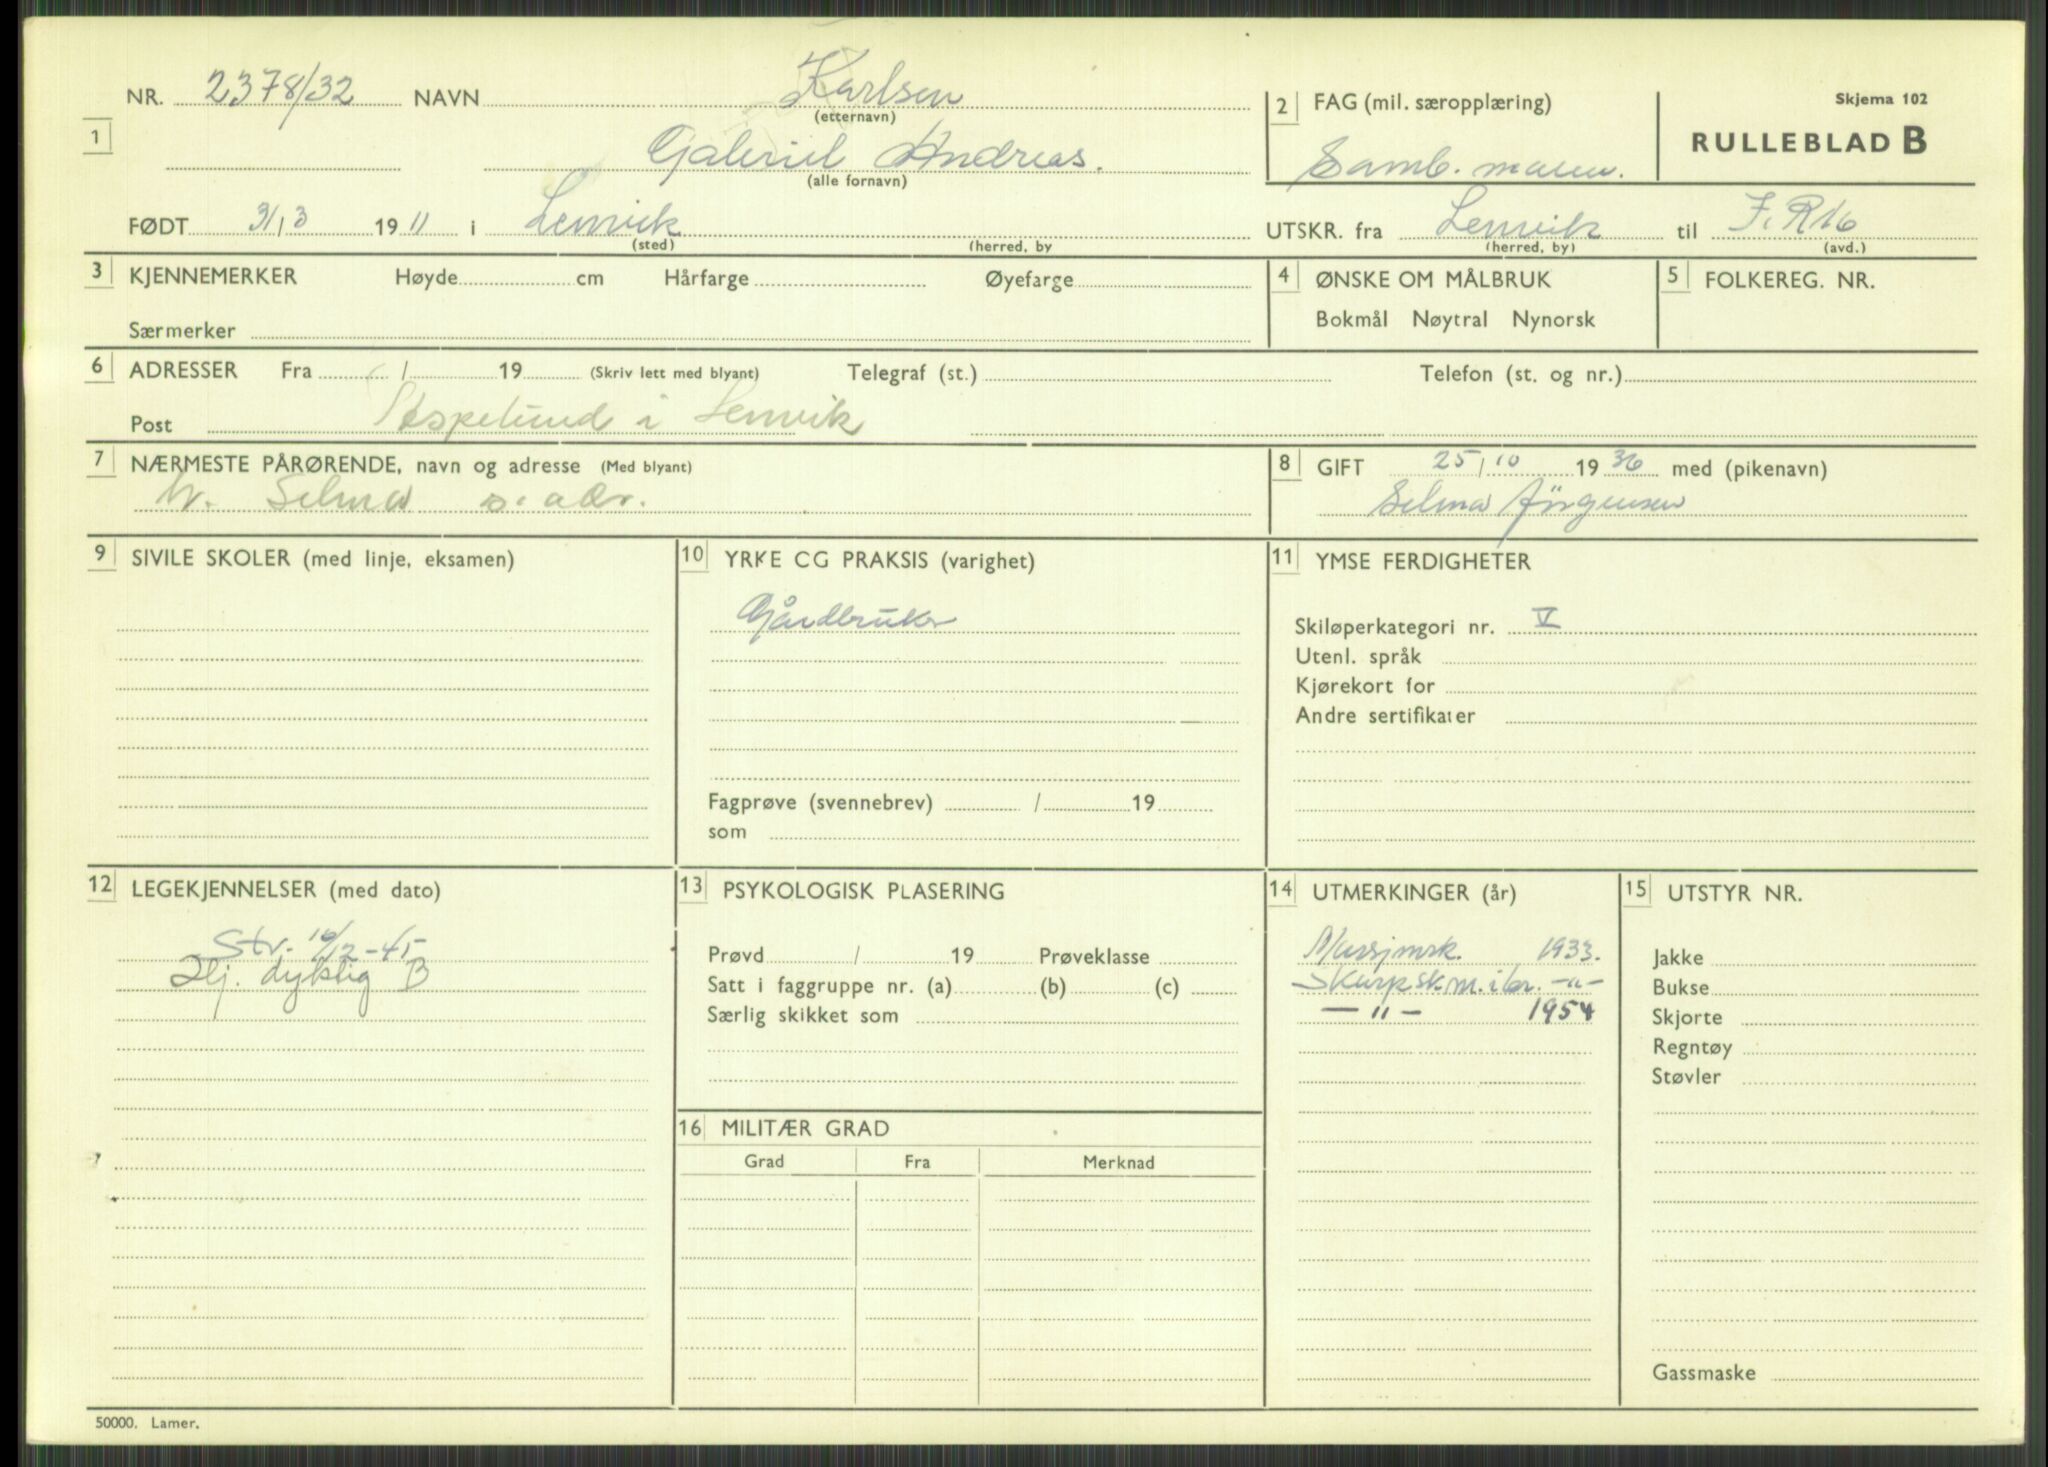 Skjema 102
RULLEBLAD B
1 NR. 2378/32 NAVN Karlsen
(etternavn)
Gabriel Andreas.
(alle fornavn)
FØDT 31/3 1911 i Lenvik
(sted) (herred, by
2 FAG (mil. særopplæring)
Samb. mann.
UTSKR. fra Lenvik til I.R16
(herred, by) (avd.)
3 KJENNEMERKER Høyde cm Hårfarge Øyefarge
Særmerker
4 ØNSKE OM MÅLBRUK
Bokmål Nøytral Nynorsk
5 FOLKEREG. NR.
6 ADRESSER Fra / 19 (Skriv lett med blyant) Telegraf (st.) Telefon (st. og nr.)
Post Espelund i Lenvik
7 NÆRMESTE PÅRØRENDE, navn og adresse (Med blyant)
h. Selma s. adr.
8 GIFT 25/10 1936 med (pikenavn)
Selma Jörgensen
9 SIVILE SKOLER (med linje, eksamen)
10 YRKE CG PRAKSIS (varighet)
Gårdbruker
Fagprøve (svennebrev) / 19
som
11 YMSE FERDIGHETER
Skiløperkategori nr. V
Utenl. språk
Kjørekort for
Andre sertifikater
12 LEGEKJENNELSER (med dato)
Str. 10/12-45
Hj. dyktig B
13 PSYKOLOGISK PLASERING
Prøvd / 19 Prøveklasse
Satt i faggruppe nr. (a) (b) (c)
Særlig skikket som
14 UTMERKINGER (år)
Marsjmrk. 1933.
Skarpskm. i br. -"-
-"- 1954
15 UTSTYR NR.
Jakke
Bukse
Skjorte
Regntøy
Støvler
Gassmaske
16 MILITÆR GRAD
Grad Fra Merknad
50000. Lamer.